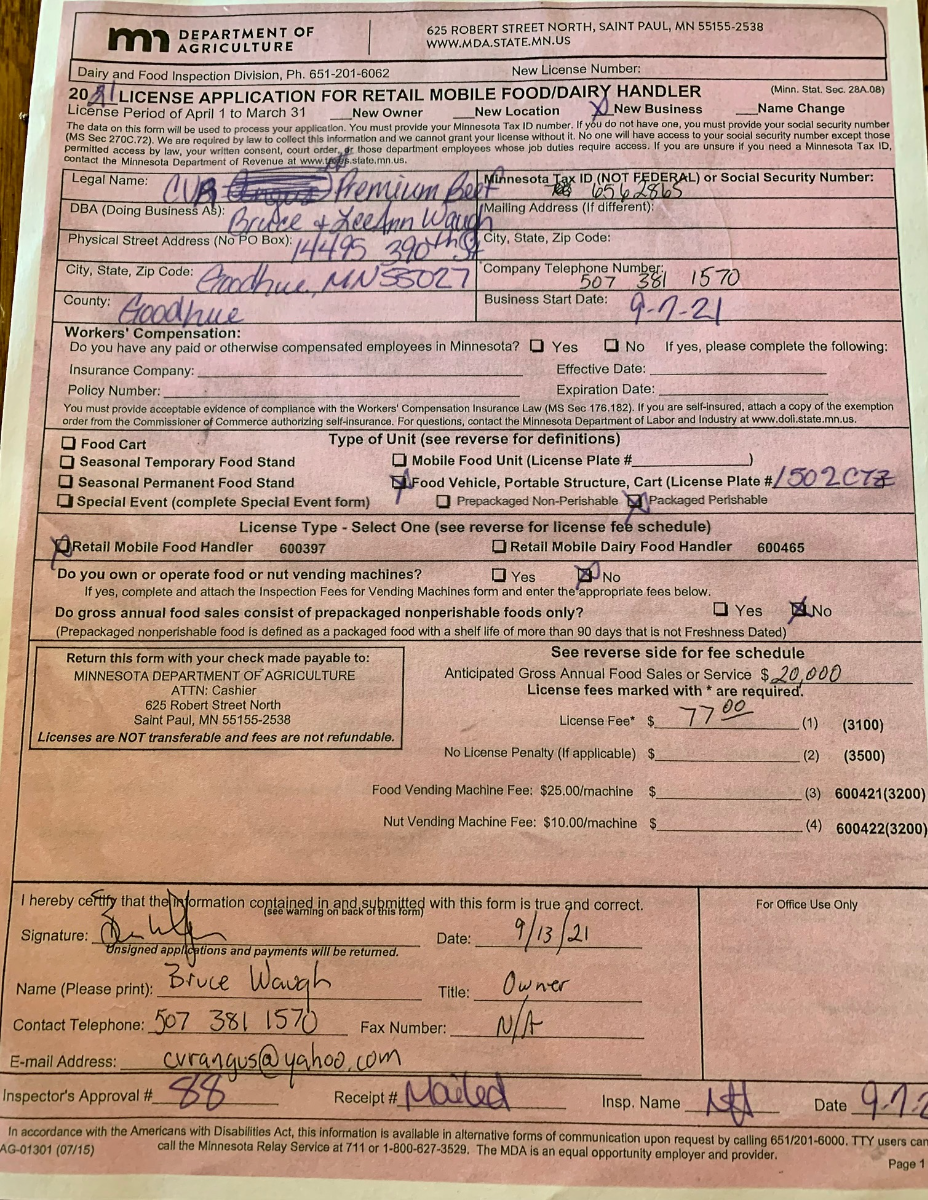 mn DEPARTMENT OF AGRICULTURE
625 ROBERT STREET NORTH, SAINT PAUL, MN 55155-2538
WWW.MDA.STATE.MN.US
Dairy and Food Inspection Division, Ph. 651-201-6062 New License Number:
2021 LICENSE APPLICATION FOR RETAIL MOBILE FOOD/DAIRY HANDLER (Minn. Stat. Sec. 28A.08)
License Period of April 1 to March 31 __New Owner __New Location X New Business __Name Change
The data on this form will be used to process your application. You must provide your Minnesota Tax ID number. If you do not have one, you must provide your social security number
(MS Sec 270C.72). We are required by law to collect this information and we cannot grant your license without it. No one will have access to your social security number except those
permitted access by law, your written consent, court order, or those department employees whose job duties require access. If you are unsure if you need a Minnesota Tax ID,
contact the Minnesota Department of Revenue at www. .state.mn.us.
Legal Name: CVR Angus Premium Beef
Minnesota Tax ID (NOT FEDERAL) or Social Security Number: 6562865
DBA (Doing Business As): Bruce & LeeAnn Waugh
Mailing Address (If different):
Physical Street Address (No PO Box): 14495 390th St
City, State, Zip Code:
City, State, Zip Code: Goodhue, MN 55027
Company Telephone Number: 507 381 1570
County: Goodhue
Business Start Date: 9-7-21
Workers' Compensation:
Do you have any paid or otherwise compensated employees in Minnesota? Yes No If yes, please complete the following:
Insurance Company: Effective Date:
Policy Number: Expiration Date:
You must provide acceptable evidence of compliance with the Workers' Compensation Insurance Law (MS Sec 176.182). If you are self-insured, attach a copy of the exemption
order from the Commissioner of Commerce authorizing self-insurance. For questions, contact the Minnesota Department of Labor and Industry at www.doli.state.mn.us.
Type of Unit (see reverse for definitions)
Food Cart
Seasonal Temporary Food Stand Mobile Food Unit (License Plate # )
Seasonal Permanent Food Stand X Food Vehicle, Portable Structure, Cart (License Plate # 1502CTZ
Special Event (complete Special Event form) Prepackaged Non-Perishable X Packaged Perishable
License Type - Select One (see reverse for license fee schedule)
X Retail Mobile Food Handler 600397 Retail Mobile Dairy Food Handler 600465
Do you own or operate food or nut vending machines? Yes X No
If yes, complete and attach the Inspection Fees for Vending Machines form and enter the appropriate fees below.
Do gross annual food sales consist of prepackaged nonperishable foods only? Yes X No
(Prepackaged nonperishable food is defined as a packaged food with a shelf life of more than 90 days that is not Freshness Dated)
Return this form with your check made payable to:
MINNESOTA DEPARTMENT OF AGRICULTURE
ATTN: Cashier
625 Robert Street North
Saint Paul, MN 55155-2538
Licenses are NOT transferable and fees are not refundable.
See reverse side for fee schedule
Anticipated Gross Annual Food Sales or Service $ 20,000
License fees marked with * are required.
License Fee* $ 77 00 (1) (3100)
No License Penalty (If applicable) $ (2) (3500)
Food Vending Machine Fee: $25.00/machine $ (3) 600421(3200)
Nut Vending Machine Fee: $10.00/machine $ (4) 600422(3200)
I hereby certify that the information contained in and submitted with this form is true and correct.
(see warning on back of this form)
For Office Use Only
Signature: Date: 9/13/21
Unsigned applications and payments will be returned.
Name (Please print): Bruce Waugh Title: Owner
Contact Telephone: 507 381 1570 Fax Number: N/A
E-mail Address: cvrangus@yahoo.com
Inspector's Approval # 88 Receipt # Mailed Insp. Name Date 9-7-2
In accordance with the Americans with Disabilities Act, this information is available in alternative forms of communication upon request by calling 651/201-6000. TTY users can
AG-01301 (07/15) call the Minnesota Relay Service at 711 or 1-800-627-3529. The MDA is an equal opportunity employer and provider.
Page 1